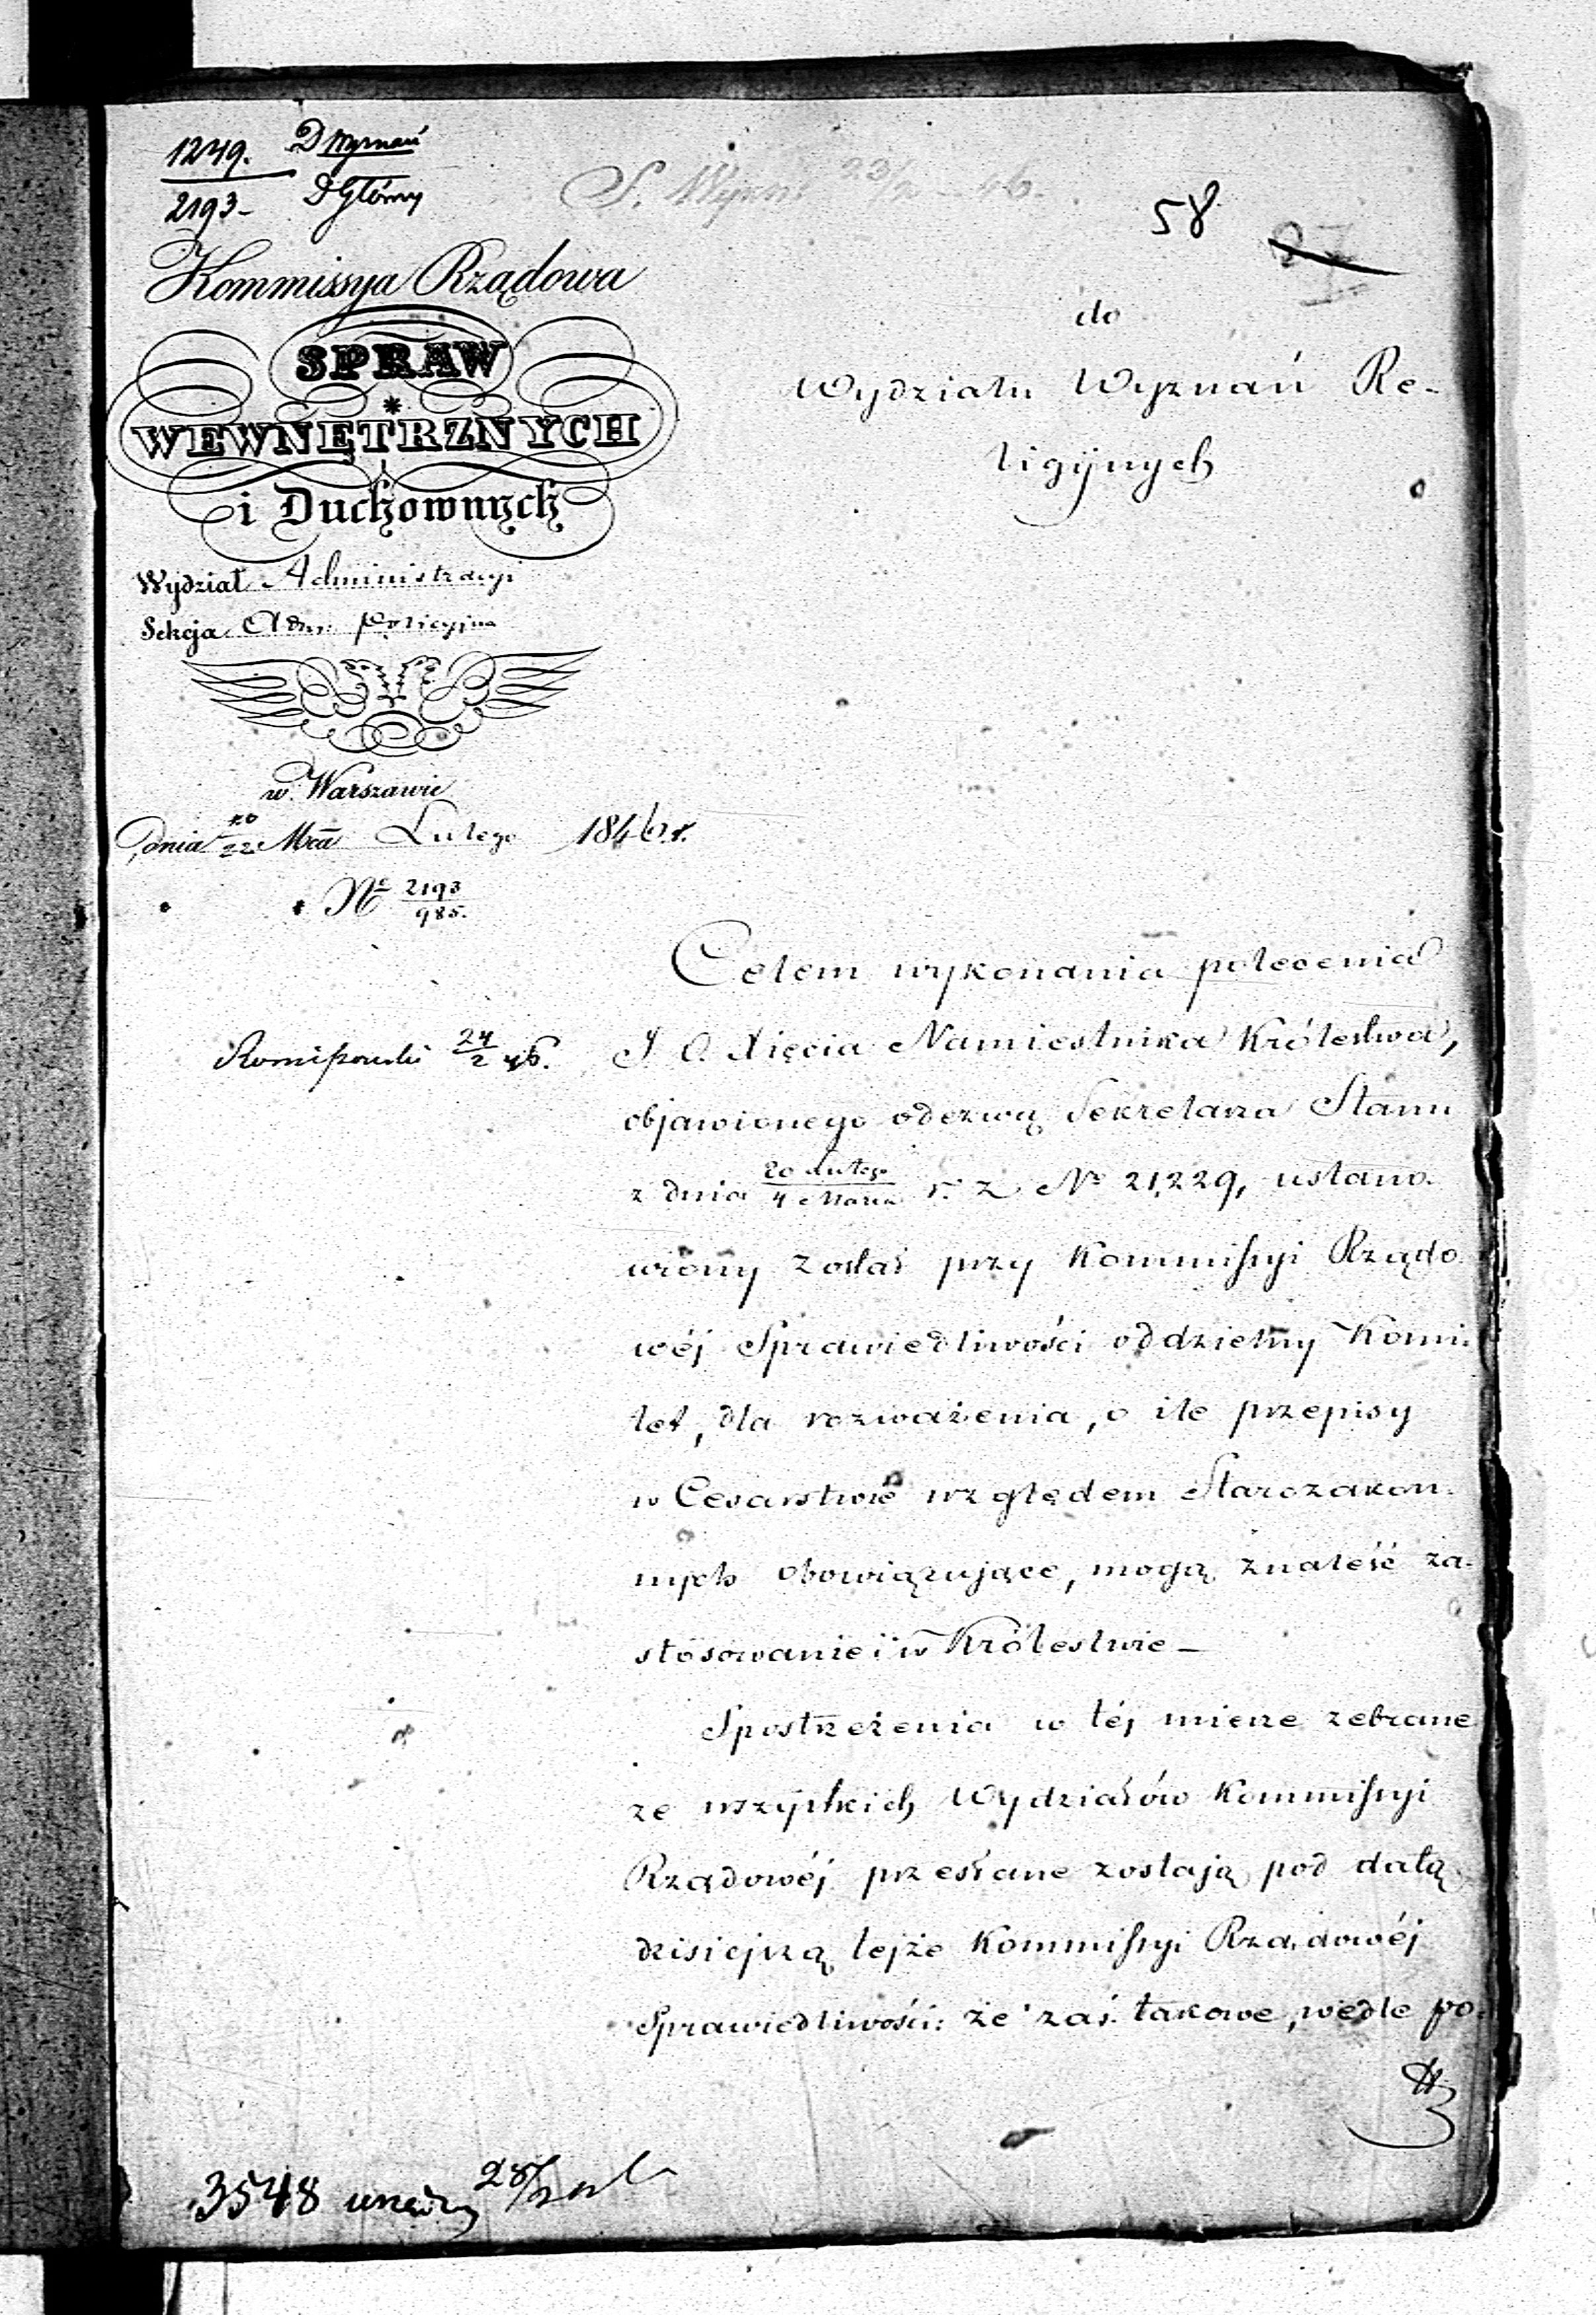 1249. D Wyznań
2193- D Główny
S. Wyzn: 23/2 - 46.
58
Kommissya Rządowa
SPRAW
WEWNĘTRZNYCH
i Duchownych
Wydział Administracyi
Sekcja Adm: Policyjna
w Warszawie
Dnia 10/22 Mca Lutego 1846 r.
No 2193/985.
do
Wydziału Wyznań Re-
ligijnych
Celem wykonania polecenia
J. O. Xięcia Namiestnika Królestwa,
objawionego odezwą Sekretarza Stanu
z dnia 20 Lutego/4 Marca r. z. No 21,229, ustano-
wiony został przy Kommissyi Rządo-
wéj Sprawiedliwości oddzielny Komi-
tet, dla rozważenia, o ile przepisy
w Cesarstwie względem Starozakon-
nych obowiązujące, mogą znaleść za-
stosowanie i w Królestwie –
Spostrzeżenia w téj mierze zebrane
ze wszystkich Wydziałów Kommissyi
Rządowéj przesłane zostają pod datą
dzisiejszą tejże Kommissyi Rządowéj
Sprawiedliwości: że zaś takowe, wedle po-
24/2 46.
3548